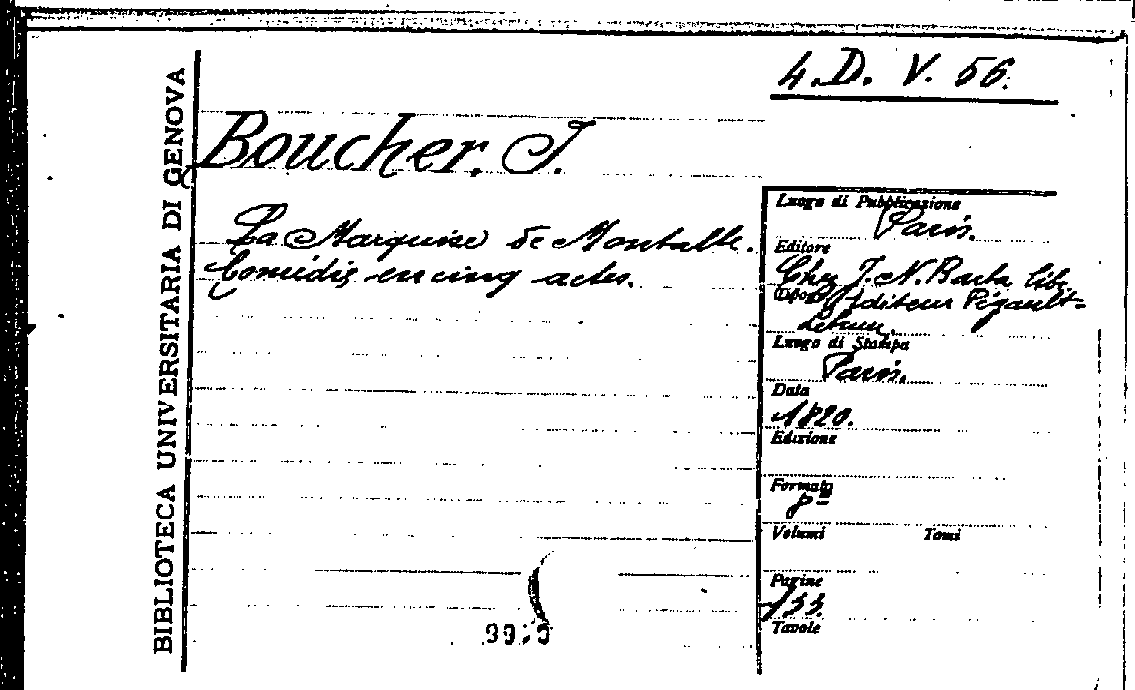 4.D. V. 56.
BIBLIOTECA UNIVERSITARIA DI GENOVA
Boucher. J.
La Marquise de Montalle.
Comédie en cinq actes.
Luogo di Pubblicazione
Paris.
Editore
Chez J. N. Barba libr.
Editeur Pigault-
Lebrun.
Luogo di Stampa
Paris.
Data
1820.
Edizione
Formato
8º
Volumi Tomi
Pagine
133.
Tavole